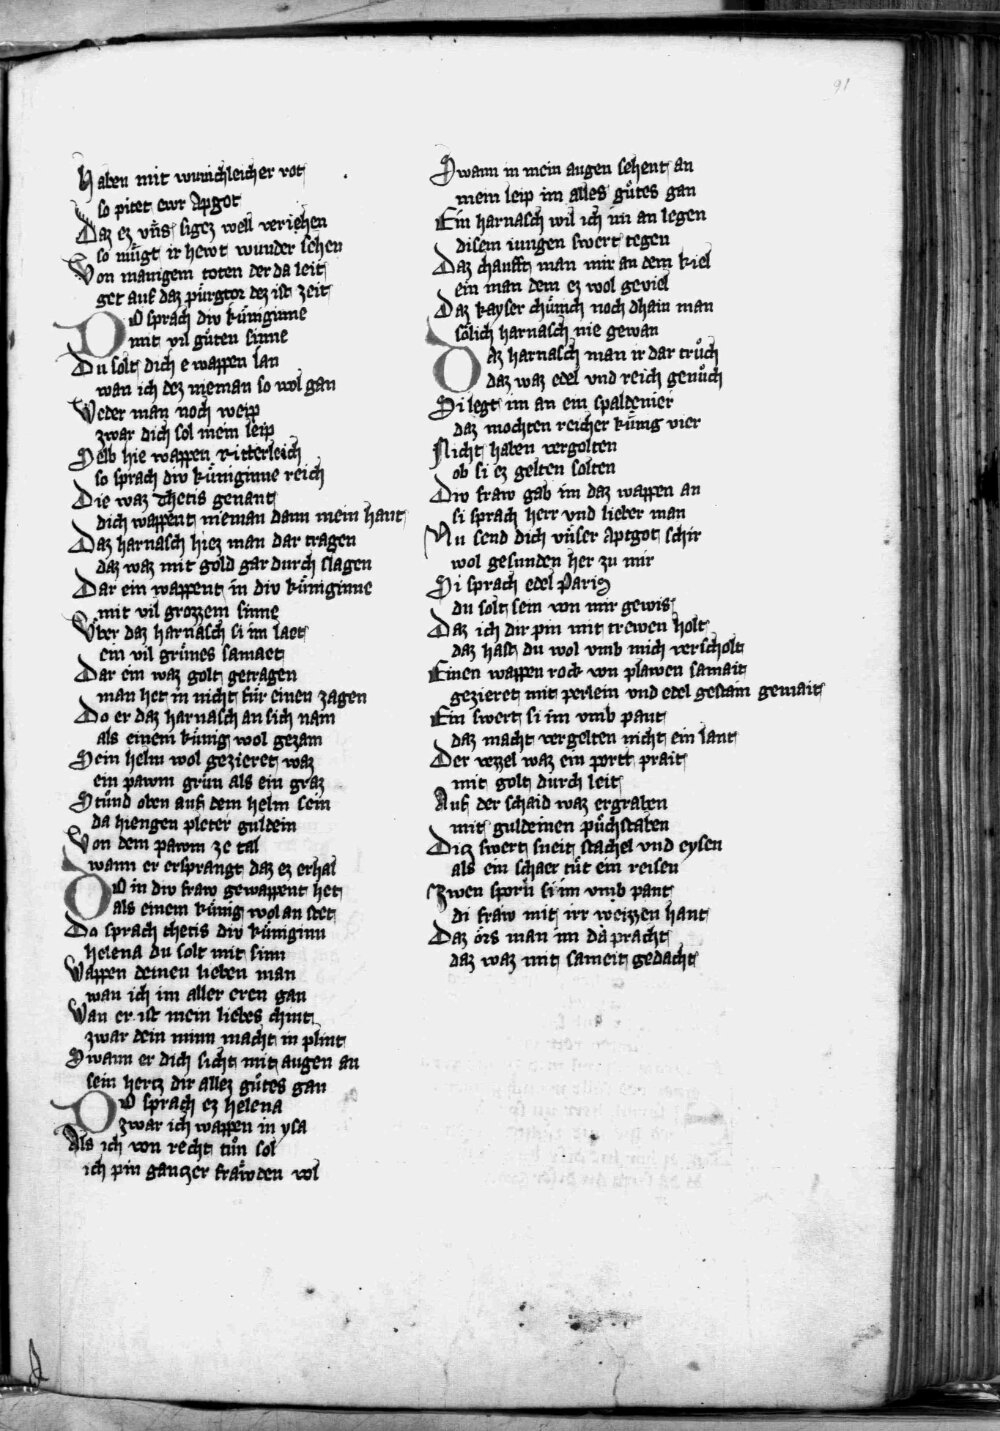 91
Haben mit wunichleicher rot
so pitet ewr Apgot
Daz ez vns sigez well veriehen
so mügt ir hewt wunder sehen
Von manigem toten der da leit
get auf daz pürgtor dez ist zeit
Do sprach div küniginne
mit vil güten sinne
Du solt dich e wappen lan
wan ich dez nieman so wol gan
Weder man noch weip
zwar dich sol mein leip
Selb hie wappen ritterleich
so sprach div küniginne reich
Die waz Thetis genant
dich wappent nieman dann mein hant
Daz harnasch hiez man dar tragen
daz waz mit gold gar durch slagen
Dar ein wappent in div küniginne
mit vil grozzem sinne
Vber daz harnasch si im laet
ein vil grünes samaet
Dar ein waz golt getragen
man het in nicht für einen zagen
Do er daz harnasch an sich nam
als einem künig wol gezam
Sein helm wol gezieret waz
ein pawm grün als ein graz
Stünd oben auf dem helm sein
da hiengen pleter guldein
Von dem pawm ze tal
wann er ersprangt daz ez erhal
Do in div fraw gewappent het
als einem künig wol an stet
Do sprach thetis div künigin
helena du solt mit sinn
Wappen deinen lieben man
wan ich im aller eren gan
Wan er ist mein liebes chint
zwar dein minn macht in plint
Swann er dich sicht mit augen an
sein hertz dir allez gütes gan
Do sprach ez helena
zwar ich wappen in ysa
Als ich von recht tün sol
ich pin gantzer fräwden vol
Swann in mein augen sehent an
mein leip im alles gütes gan
Ein harnasch wil ich im an legen
disem iungen swert tegen
Daz chaufft man mir an dem kiel
ein man dem ez wol geviel
Daz kayser chünich noch dhain man
sölich harnasch nie gewan
Daz harnasch man ir dar trüch
daz waz edel vnd reich genüch
Si legt im an ein spaldenier
daz mochten reicher künig vier
Nicht haben vergolten
ob si ez gelten solten
Div fraw gab im daz wappen an
si sprach herr vnd lieber man
Nu send dich vnser aptgot schir
wol gesunden her zu mir
Si sprach edel Paris
du solt sein von mir gewis
Daz ich dir pin mit trewen holt
daz hast du wol vmb mich verscholt
Einen wappen rock von plawen samait
gezieret mit perlein vnd edel gestain gemait
Ein swert si im vmb pant
daz macht vergelten nicht ein lant
Der vezzel waz ein portt prait
mit golt durch leit
Auf der schaid waz ergraben
mit guldeinen püchstaben
Ditz swert sneit stachel vnd eysen
als ein schaer tüt ein reisen
Zwen sporn si im vmb pant
di fraw mit irr weizzen hant
Daz örs man im da pracht
daz waz mit sameit gedacht